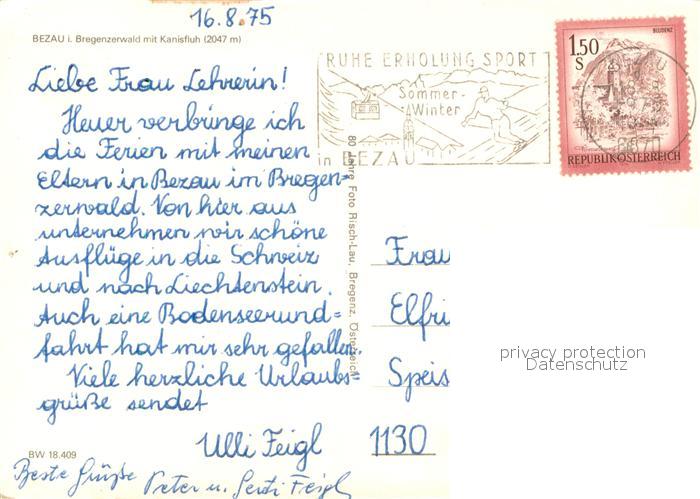 16.8.75
BEZAU i. Bregenzerwald mit Kanisfluh (2047 m)
Liebe Frau Lehrerin!
Heuer verbringe ich
die Ferien mit meinen
Eltern in Bezau im Bregen=
zerwald. Von hier aus
unternehmen wir schöne
Ausflüge in die Schweiz
und nach Liechtenstein.
Auch eine Bodenseerund=
fahrt hat mir sehr gefallen.
Viele herzliche Urlaubs=
grüße sendet
Ulli Feigl
BW 18.409
Beste Grüße Peter u. Gerti Feigl
80 Jahre Foto Risch-Lau, Bregenz, Österreich
RUHE ERHOLUNG SPORT
Sommer-
Winter
in BEZAU
1.50
S
BLUDENZ
REPUBLIK ÖSTERREICH
Frau
Elfri
Speis
1130
privacy protection
Datenschutz